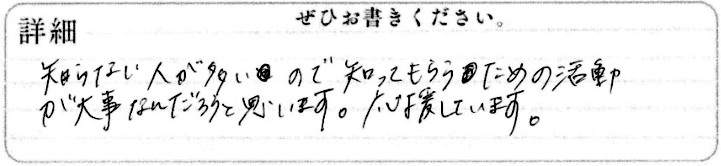 ぜひお書きください。
詳細
知らない人が多いので知ってもらうための活動
が大事なんだろうと思います。応援しています。